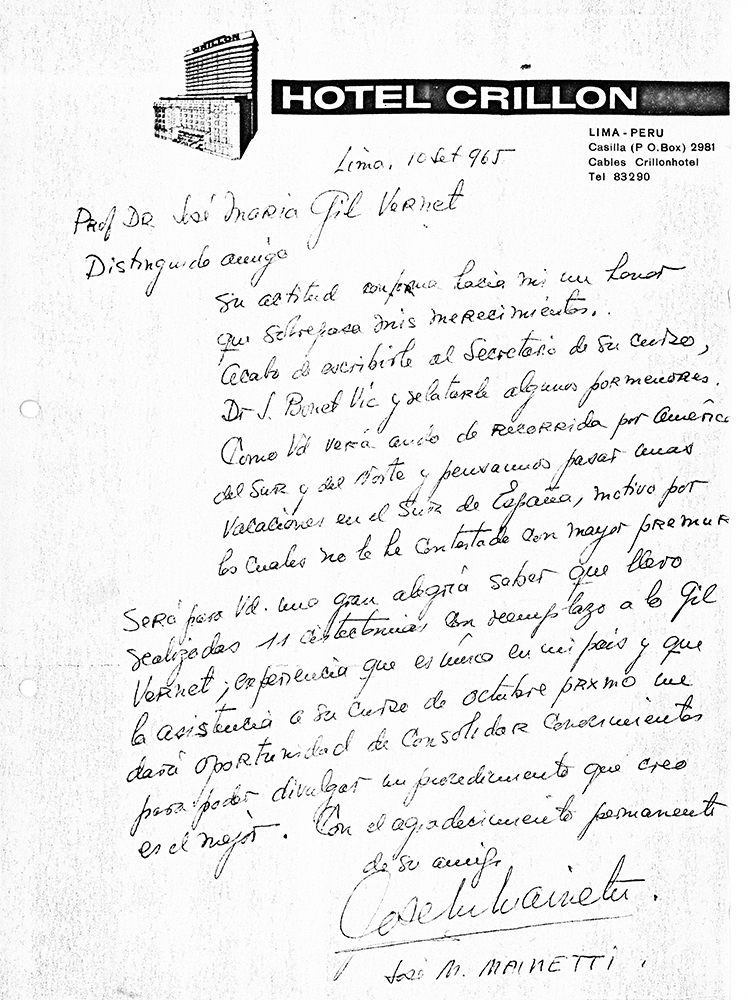 CRILLON
HOTEL CRILLON
LIMA - PERU
Casilla (P O.Box) 2981
Cables Crillonhotel
Tel 83290
Lima, 10 Set 965
Prof Dr José Maria Gil Vernet
Distinguido amigo
Su actitud conforma hacia mi un honor
que sobrepasa mis merecimientos.
Acabo de escribirle al Secretario de su curso,
Dr J. Bonet Vic y relatarle algunos pormenores.
Como Vd verá ando de recorrida por América
del Sur y del Norte y pensamos pasar unas
vacaciones en el Sur de España, motivo por
los cuales no le he contestado con mayor premur
Será para Vd. una gran alegría saber que llevo
realizadas 11 cistectomias con reemplazo a lo Gil
Vernet; experiencia que es única en mi país y que
la asistencia a su curso de octubre prxmo me
dará oportunidad de consolidar conocimientos
para poder divulgar un procedimiento que creo
es el mejor. Con el agradecimiento permanente
de su amigo
José M. Mainetti.
José M. MAINETTI.